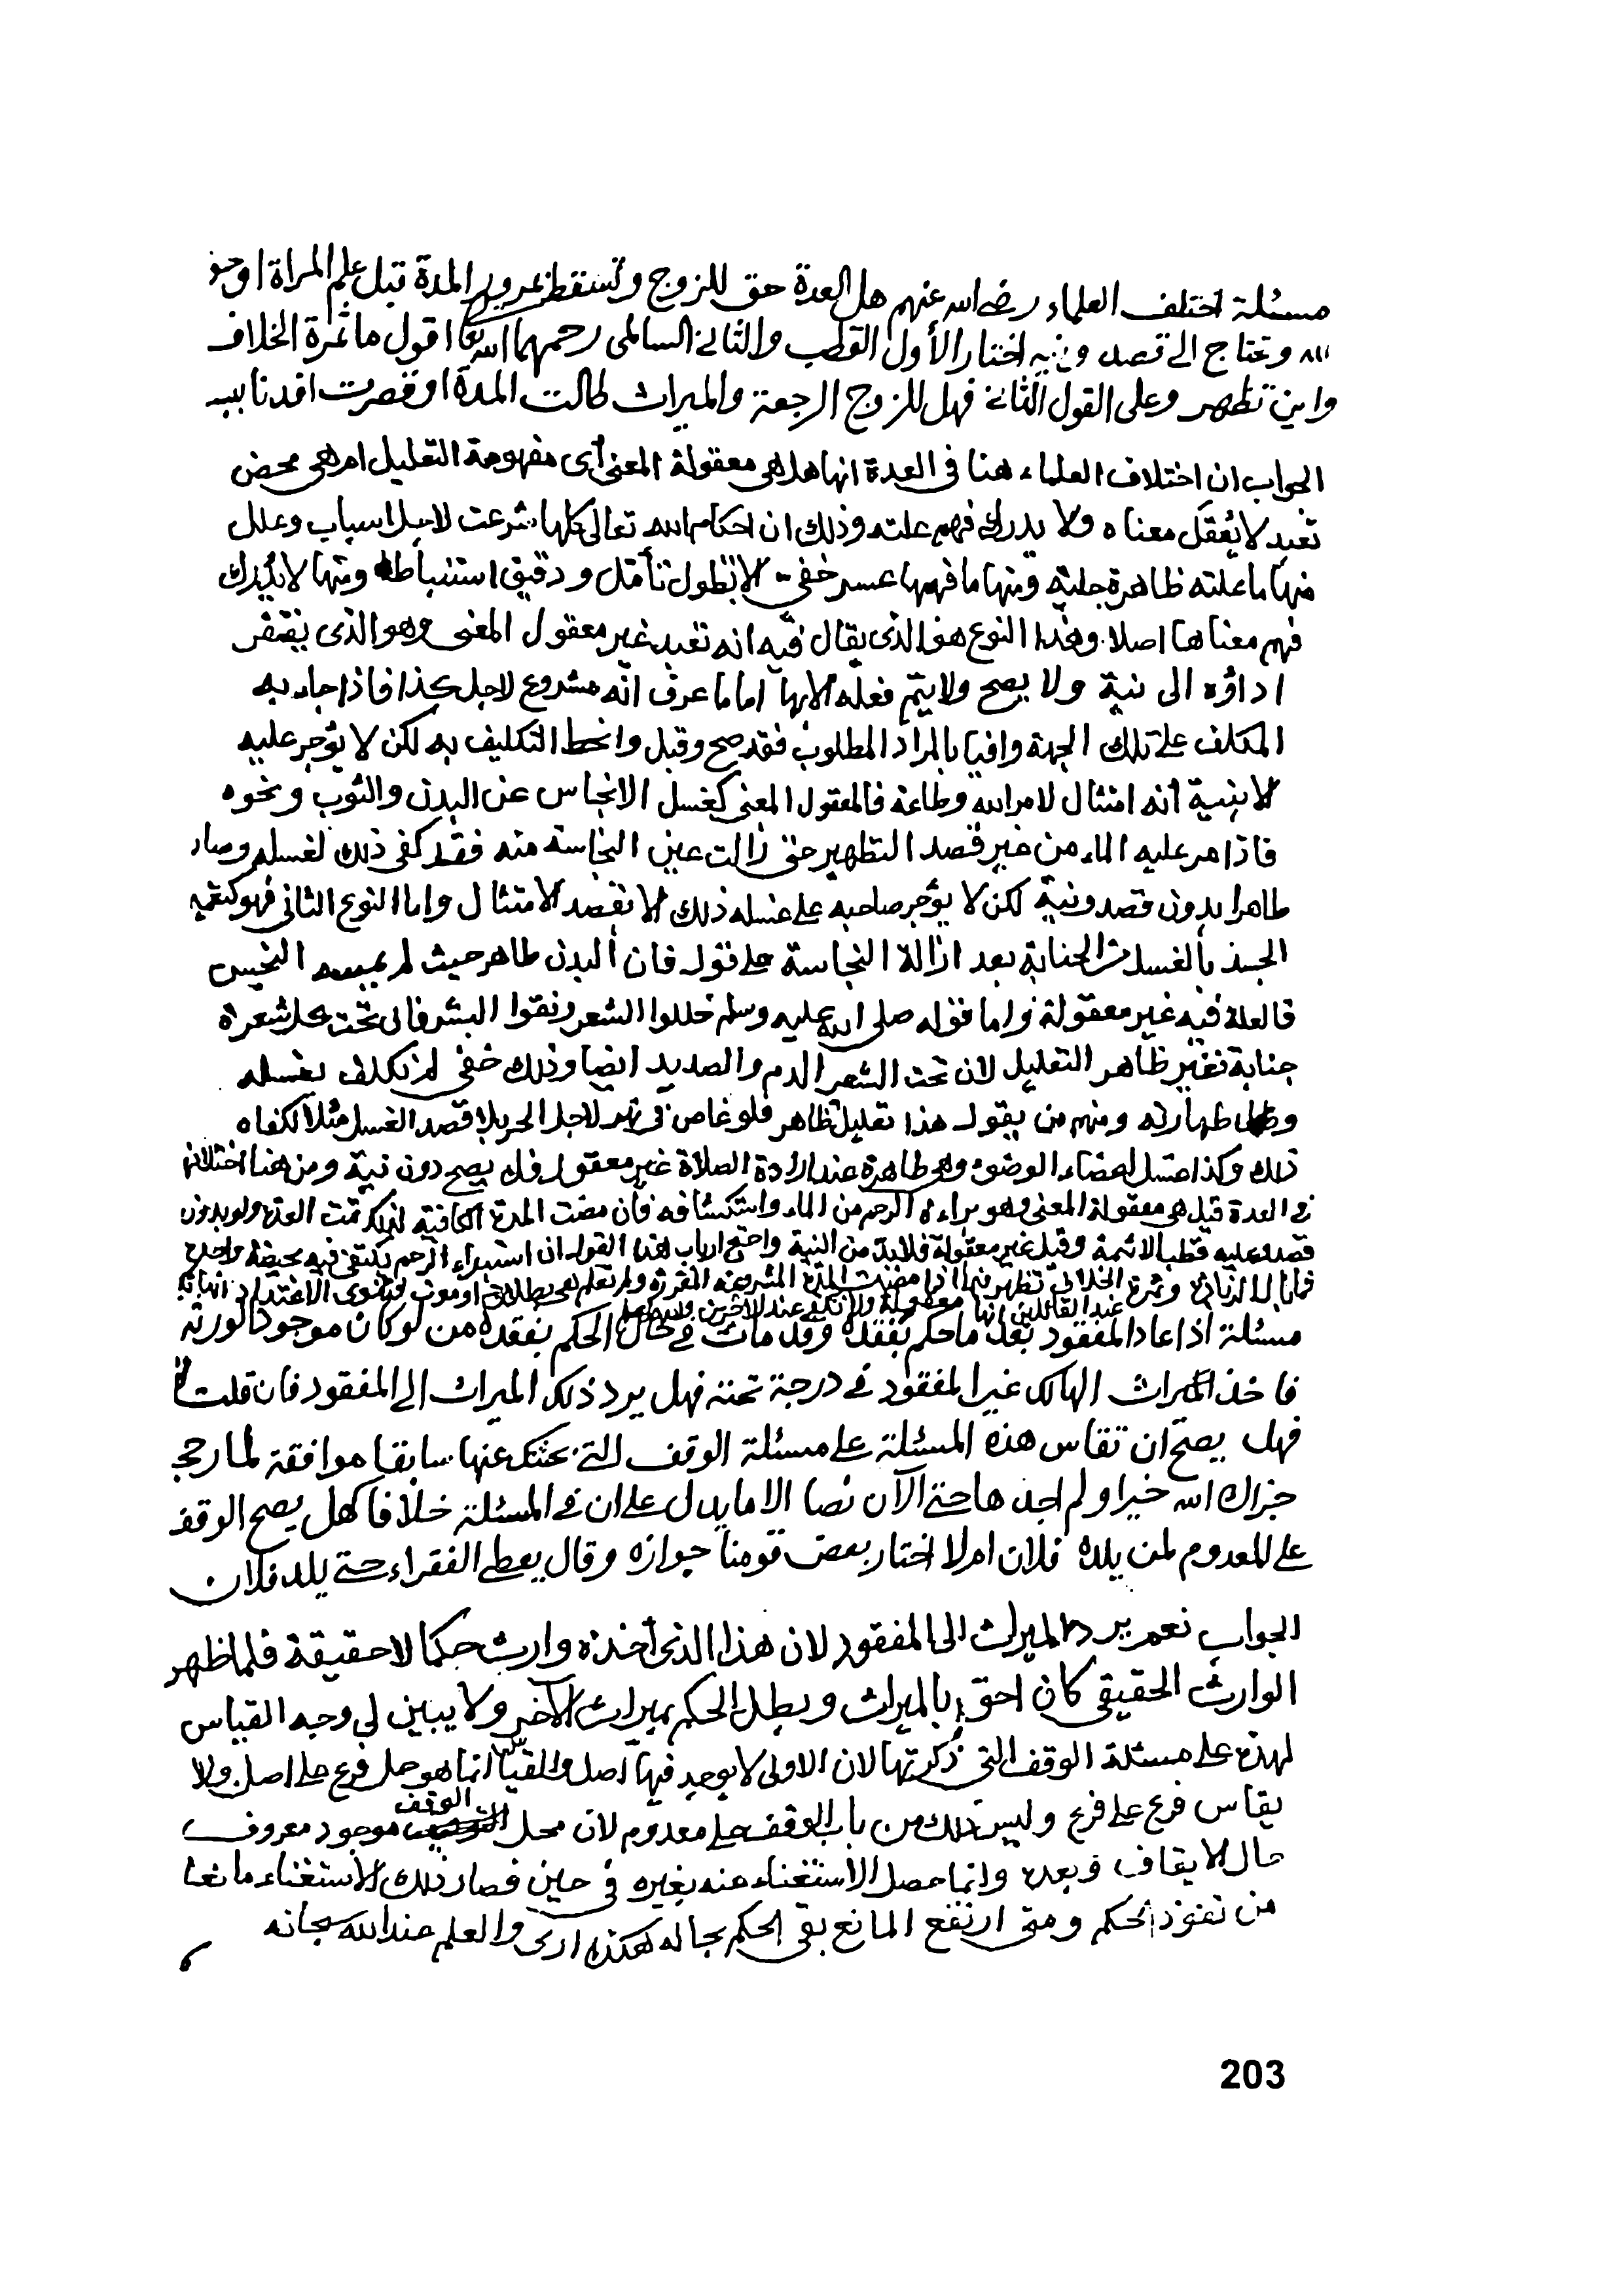 مسئلة اختلف العلماء رضي الله عنهم هل العدة حق للزوج وتسقط بمرور المدة قبل علم المراة او حق
لله وتحتاج الى قصد ونية اختار الأول القطب والثاني السالمى رحمهما الله تعا اقول ما ثمرة الخلاف
واين تظهر وعلى القول الثاني فهل للزوج الرجعة والميراث طالت المدة او قصرت افدنا سيد
الجواب ان اختلاف العلماء هنا في العدة انها هل هي معقولة المعنى أى مفهومة التعليل ام هي محض
تعبد لا يُعقل معناه ولا يدرك فهم علته وذلك ان احكام الله تعالى كلها شرعت لاجل اسباب وعلل
منها ما علته ظاهرة جلية ومنها ما فهمها عسر خفي الا بطول تأمل ودقيق استنباط ومنها لا يدرك
فهم معناها اصلا وهذا النوع هو الذى يقال فيه انه تعبد غير معقول المعنى وهو الذى يفتقر
اداؤه الى نية ولا يصح ولا يتم فعله الا بها اما ما عرف انه مشروع لاجل كذا فاذا جاء به
المكلف على تلك الجهة وافيا بالمراد المطلوب فقد صح وقبل وانحط التكليف به لكن لا يؤجر عليه
الا بنية أنه امتثال لامر الله وطاعة فالمعقول المعنى كغسل الانجاس عن البدن والثوب ونحوه
فاذا مر عليه الماء من غير قصد التطهير حتى زالت عين النجاسة منه فقد كفى ذلك لغسله وصار
طاهرا بدون قصد ونية لكن لا يؤجر صاحبه على غسله ذلك الا بقصد الامتثال واما النوع الثانى فهو كتعميم
الجسد بالغسل من الجنابة بعد ازالة النجاسة على قول فان البدن طاهر حيث لم يمسه النجس
فالعلة فيه غير معقولة واما قوله صلى الله عليه وسلم خللوا الشعر ونقوا البشر فان تحت كل شعرة
جنابة فغير ظاهر التعليل لان تحت الشعر الدم والصديد ايضا وذلك خفي لم نكلف بغسله
طهارته ومنهم من يقول هذا تعليل ظاهر فلو غاص في نهر لاجل الحر بلا قصد الغسل مثلا لكفاه
ذلك وكذا غسل اعضاء الوضوء وهى طاهرة عند ارادة الصلاة غير معقول فلم يصح دون نية ومن هنا اختلافهم
في العدة قيل هى معقولة المعنى وهو براءة الرحم من الماء واستكشافه فان مضت المدة الكافية لذلك تمت العدة ولو بدون
قصد وعليه قطب الائمة وقيل غير معقولة فلا بد من النية واحتج ارباب هذا القول ان استبراء الرحم يكتفى فيه بحيضة واحدة
فما بال الزيادة وثمرة الخلاف تظهر فيما اذا مضت المدة المشروعة المقررة ولم تعلم هى بطلاق او موت فتنوى الاعتداد انها
عند القائلين انها معقولة ولا تكفي عند الآخرين والله اعلم
مسئلة اذا عاد المفقود بعد ما حكم بفقده وقد مات في حال الحكم بفقده من لو كان موجودا لورثه
فاخذ الميراث الهالك غير المفقود في درجة تحته فهل يرد ذلك الميراث الى المفقود فان قلت
فهل يصح ان تقاس هذه المسئلة على مسئلة الوقف التي بحثتك عنها سابقا موافقة لما رجح
جزاك الله خيرا ولم اجد ها حتى الآن نصا الا ما يدل على ان في المسئلة خلافا كهل يصح الوقف
على المعدوم لمن يلده فلان ام لا اختار بعض قومنا جوازه وقال يعطى الفقراء حتى يلد فلان
الجواب نعم يرد الميراث الى المفقود لان هذا الذى أخذه وارث حكما لا حقيقة فلما ظهر
الوارث الحقيقي كان احق بالميراث وبطل الحكم بميراث الآخر ولا يبين لي وجه القياس
لهذه على مسئلة الوقف التي ذكرتها لان الاولى لا يوجد فيها اصل والقياس انما هو حمل فرع على اصل ولا
يقاس فرع على فرع وليس ذلك من باب الوقف على معدوم لان محل الوقف موجود معروف
حال الايقاف وبعده وانما حصل الاستغناء عنه بغيره في حين فصار ذلك الاستغناء مانعا
من نفوذ الحكم ومتى ارتفع المانع بقي الحكم بحاله هكذا ارى والعلم عند الله سبحانه
203